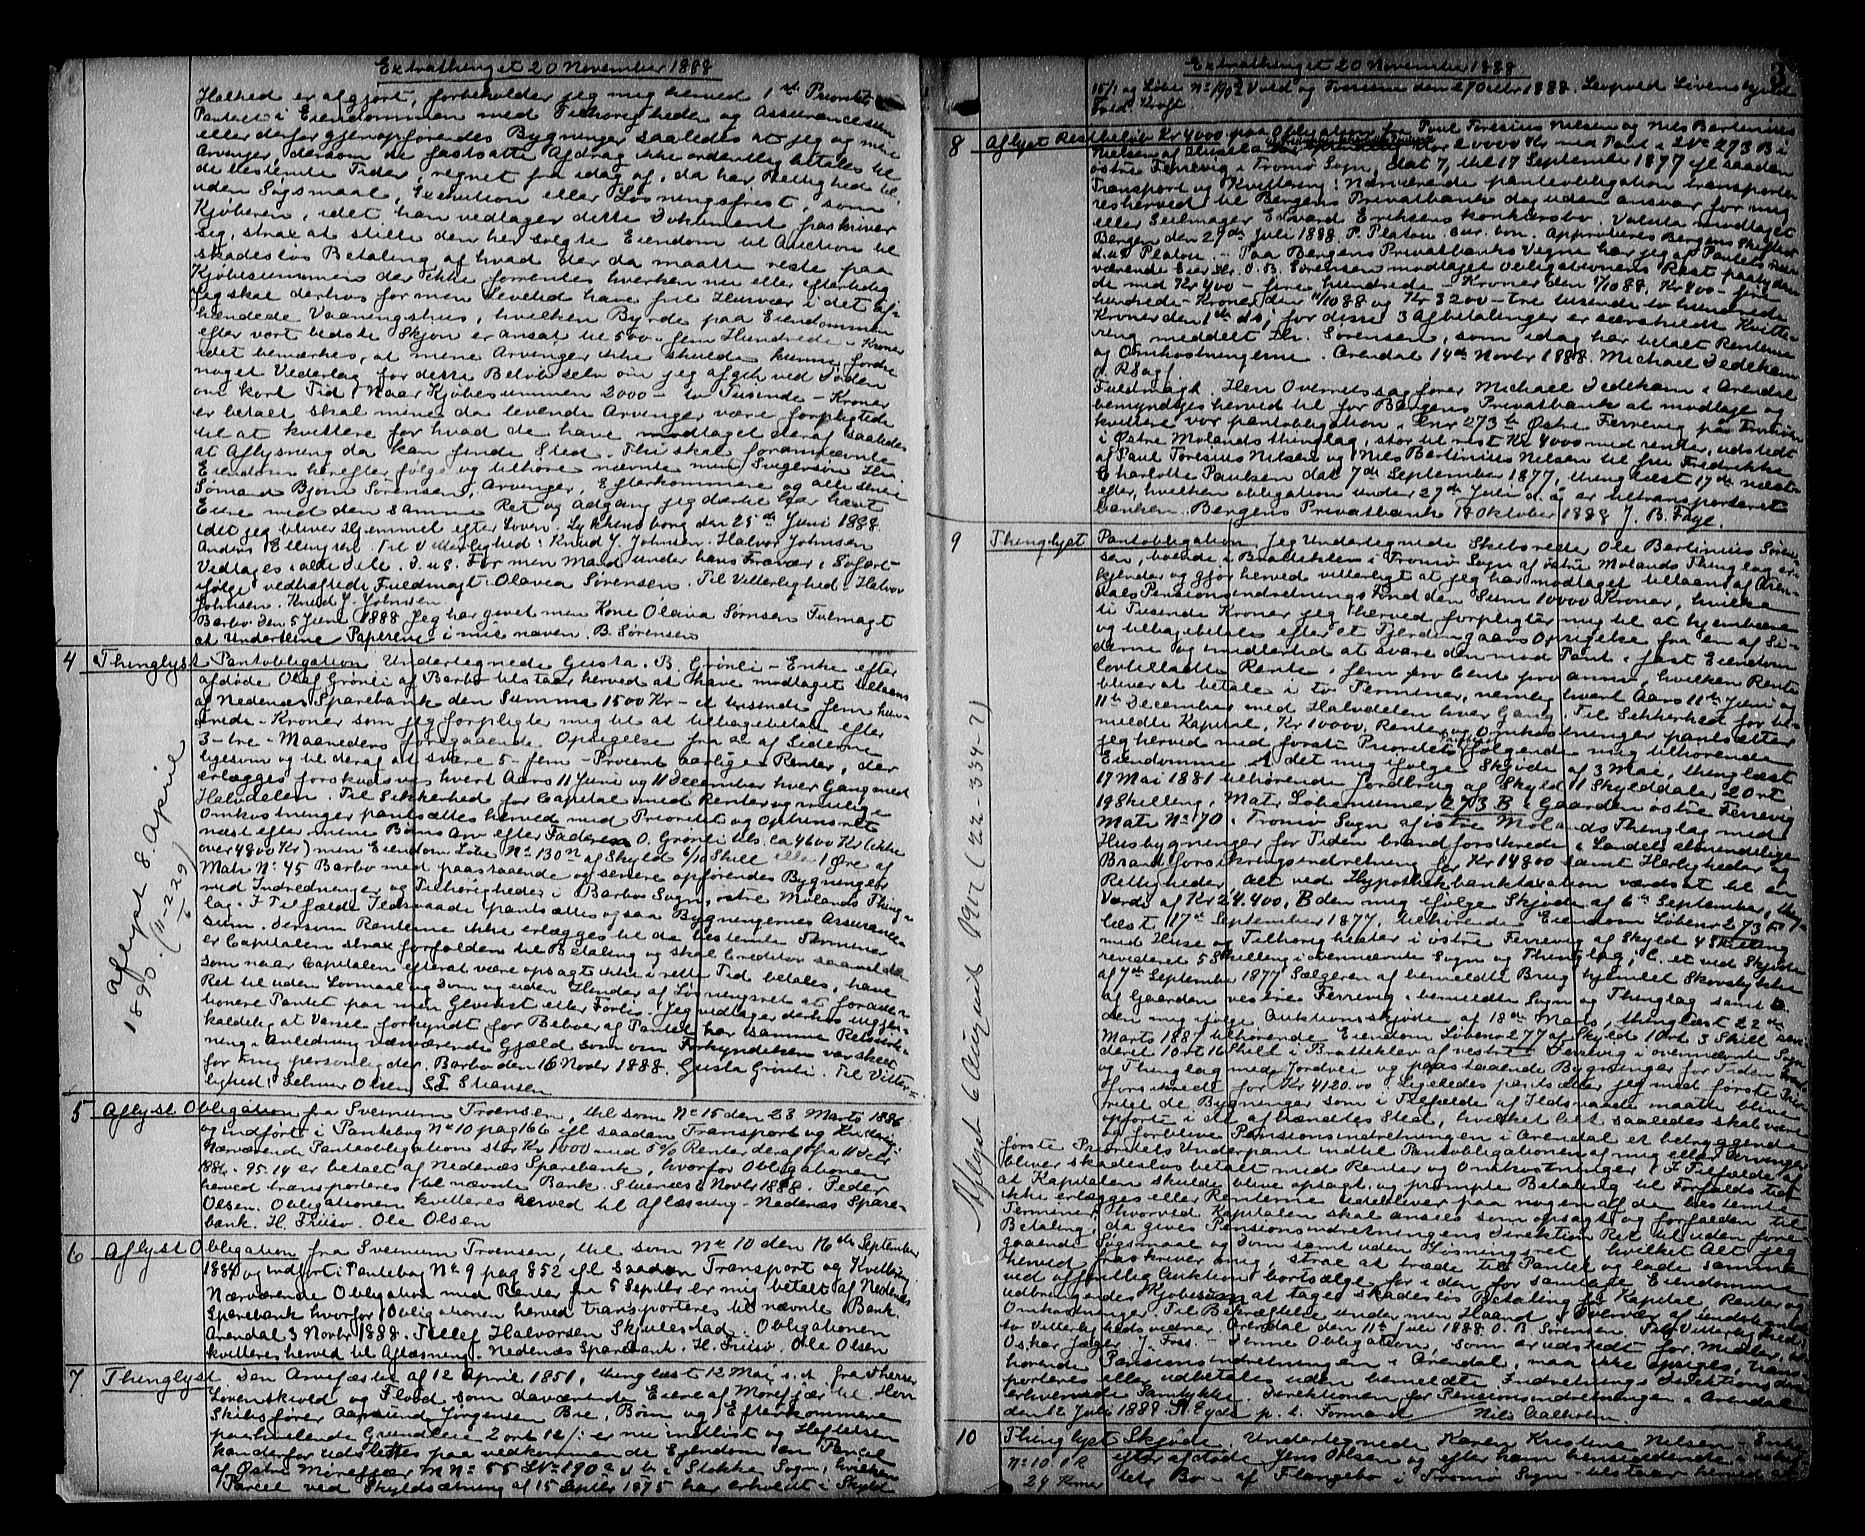 Extrathinget 20 November 1888
Helhed er afgjort, forbeholder jeg mig herved 1ste Prioritets
Panteret i Eiendommen med Tilhørigheder og Assurancesum
eller derfor gjenopførendes Bygninger saaledes at jeg og mine
Arvinger, dersom de fastsatte Afdrag ikke ordentlig betales til
de bestemte Tider, regnet fra idag af, da har Rettighed til
uden Søgsmaal, Execution eller Løsningsfrist, som
Kjøberen, idet han vedtager dette Dokument fraskriver
sig, strax at stille den her solgte Eiendom til Auction til
skadesløs Betaling af hvad der da maatte reste paa
Kjøbesummen der ikke forrentes hverken nu eller efterledig
Jeg skal derhos for min Levetid have frit Husvær i det af-
hændede Vaaningshus, hvilken Byrde paa Eiendommen
efter vort bedste Skjøn er ansat til 500 - fem Hundrede - Kroner
idet bemærkes, at mine Arvinger ikke skulde kunne fordre
noget Vederlag for dette Beløb selv om jeg afgik ved Døden
om kort Tid. Naar Kjøbesummen 2000 - to Tusende - Kroner
er betalt skal mine da levende Arvinger være forpligtede
til at kvittere for hvad de have modtaget deraf saaledes
at Aflysning da kan finde Sted. Thi skal forannævnte
Eiendom herefter følge og tilhøre nævnte min Svigersøn Hr
Sømand Bjørn Sørensen, Arvinger, Efterkommere og alle senere
Eiere med den samme Ret og Adgang jeg dertil har havt
idet jeg bliver Hjemmel efter Loven. Lykkensborg den 25de Juni 1888.
Anders Ellingsen. Til Vitterlighed: Knud J. Johnsen. Halvor Johnsen
Vedtages i alle Dele. D.u.s. For min Mand under hans Fravær i Søfart
ifølge vedheftede Fuldmagt. Olavia Sørensen. Til Vitterlighed: Halvor
Johnsen. Knud J. Johnsen
Barbo den 5 Juni 1888 Jeg har givet min Kone Olavia Sørnsen Fulmagt
at Undertene Paperene i mit naven. B. Sørensen
4 Thinglyst Pantobligation Undertegnede Gusta. B. Grønli - Enke efter
afdøde Olaf Grønli af Barbo tilstaar herved at have modtaget tillaans
af Nedenæs Sparebank den Summa 1500 Kr - et tusinde fem hun-
drede - Kroner som jeg forpligter mig til at tilbagebetale efter
3 - tre - Maaneders foregaaende Opsigelse fra en af Siderne
ligesom og til deraf at svare 5 - fem - Procent aarlige Renter, der
erlægges forskudsvis hvert Aars 11 Juni og 11 December hver Gang med
Halvdelen. Til Sikkerhed for Capital med Renter og mulige
Omkostninger pantsættes herved med Prioritet og Opthensret
næst efter mine Børns Arv efter Faderen O. Grønli tils. ca 4600 Kr (ikke
over 4800 Kr) men Eiendom Løbe No 130 af Skyld 6/10 Skill eller 1 Øre af
Matr No 45 Barbo med paastaaende og senere opførendes Bygninger
med Indredninger og Tilhørigheder i Barbo Sogn, østre Molands Thing-
lag. I Tilfælde Ildsvaade pantsættes ogsaa Bygningernes Assurance-
sum. Dersom Renterne ikke erlægges til de bestemte Terminer
er Capitalen strax forfalden til Betaling og skal Creditor saavelda
som naar Capitalen efterat være opsagt ikke i rette Tid betales, have
Ret til uden Lovmaal og Dom og uden Hinder af Løsningsret at foraaue-
tionere Pantet paa min Gevinst eller Forlis. Jeg vedtager derhos uigjen-
kaldelig at Varsel forkyndt for Beboer af Pantet har samme Retsvirk-
ning i Anledning nærværende Gjæld som om Forkyndelsen var skeet
for mig personlig der. Barbo den 16 Novbr 1888. Gusta Grønli. Til Vitter-
lighed: Selmer Olsen S.T. Stiansen
Aflyst 8. April
1890. (11-229)
5 Aflyst Obligation fra Sveinum Troensen, thl som No 15 den 23 Marts 1886
og indført i Pantebog No 10 pag 166 efl saadan Transport og Kvittering
Nærværende Pantobligation stor Kr 1000 med 5% Renter deraf fra 11 Febr
1886 - 95.14 er betalt af Nedenæs Sparebank, hvorfor Obligationen
herved transporteres til nævnte Bank. Stuenæs 6 Novbr 1888. Peder
Olsen. Obligationen kvitteres herved til Aflæsning - Nedenæs Spare-
bank. H. Friisø. Ole Olsen
6 Aflyst Obligation fra Sveinum Troensen, thl som No 10 den 16de September
1884 og indført i Pantebog No 9 pag 852 efl saadan Transport og Kvittering
Nærværende Obligation med Renter fra 5 Septbr er mig betalt af Nedenæs
Sparebank hvorfor Obligationen herved transporteres til nævnte Bank.
Arendal 3 Novbr 1888. Tellef Halvorsen Skjulestad. Obligationen
kvitteres herved til Aflæsning. Nedenæs Sparebank. H. Friisø. Ole Olsen
7 Thinglyst Den Arvefæstes af 12 April 1851, thinglæst 12 Mai s.A. fra Therre
Løvenskiold og Flood som daværende Eiere af Morefjær til Herr
Skibsfører Aanund Jørgensen Bre, Børn og Efterkommere
paahvilende Grundleie 2 ort 12 s. er nu indløst og Heftelsen
kan derfor udslettes paa vedkommende Eiendom en Parcel
af Østre Morefjær M No 55 LNo 190 a & b i Stokke Sogn, hvilken
Parcel ved Skyldsætning af 15 Septbr 1875 har erholdt i Skyld
Extrathinget 20 November 1888 3
15/1 og Løbe No 190 Vold og Torosin den 27 Octbr 1888. Leopold Løvenskjold
Fred. Kroft.
8 Aflyst Restbeløb Kr 4000 paa Obligation fra Paul Toresius Nilsen og Nils Bertinius
Nielsen af stor 20000 Kr med Pant i LNo 273 B i
østre Færevig i Tromø Sogn, dat 7, thl 17 September 1877 efl saaden
Transport og Kvittering: Nærværende pantobligation transporte-
res herved til Bergens Privatbank dog uden ansvar for mig
eller Seilmager Edvard Eriksens konkursbo. Valuta modtaget
Bergen den 27de Juli 1888. P. Platou cur. bon. Approberes Bergens Skifteret
d.u.s. Platou. - Paa Bergens Privatbanks Vegne har jeg af Pantets nu-
værende Eier Hr. O. B. Sørensen modtaget Obligationens Rest paaføl-
de med Kr 400 - fire hundrede - Kroner den 1/10 88, Kr 400 - fire
hundrede - Kroner den 11/10 88 og Kr 3200 - tre tusende to hundrede
Kroner den 1ste ds; for disse 3 Afbetalinger er særskildt Kvitte-
ring meddelt Hr. Sørensen, som idag har betalt Renterne
og Omkostningerne. Arendal 14de Novbr 1888. Michael Dedekam
o. R Sagf
Fuldmagt. Herr Overretssagfører Michael Dedekam i Arendal
bemyndiges herved til for Bergens Privatbank at modtage og
kvittere vor pantobligation i Lnr 273 b Østre Ferrevig paa Tromø
i Østre Molands thinglag, stor til rest Kr 4000 med renter, udstedt
af Paul Toresius Nilsen og Nils Bertinius Nielsen til fru Fredrikke
Charlotte Paulsen dat 7de September 1877, thinglæst 17de næst-
efter, hvilken obligation under 27de Juli d.a. er tiltransporteret
banken. Bergens Privatbank 18 Oktober 1888 J. B. Faye.
9 Thinglyst Pantobligation Jeg Undertegnede Skibsreder Ole Bertinius Søren-
sen, boende i Bratteklev i Tromø Sogn af østre Molands Thinglag er-
kjender og gjør herved vitterligt at jeg har modtaget tillaans af Aren-
dals Pensionsindretnings Fond den Sum 10000 Kroner, hvilke
ti Tusende Kroner jeg herved forpligter mig til at hjembære
og tilbagebetale efter et Fjerdingaars Opsigelse fra en af Si-
derne og imidlertid at svare den mod Pant i fast Eiendom
lovtilladte Rente, fem pro Cent pro anno, hvilken Rente
bliver at betale i to Terminer, nemlig hvert Aars 11te Juni og
11te December med Halvdelen hver Gang. Til Sikkerhed for be-
meldte Kapital, Kr 10000, Renter og Omkostninger pantsætter
jeg herved med første Prioritets følgende mig tilhørende
Eiendomme A det mig ifølge Skjøde af 3 Mai, thinglæst
17 Mai 1881 tilhørende Jordbrug af Skyld 1 Skylddaler 2 Ort
19 Skilling, Matr Løbenumer 273 B i Gaarden østre Ferrevig
Matr No 70, Tromø Sogn af østre Molands Thinglag med
Husbygninger for Tiden brandforsikrede i Landets almindelige
Brandforsikringsindretning for Kr 14800 samt Herligheder og
Rettigheder, alt ved Hypothekbanktaxation værdsat til en
Værdi af Kr 24.400, B den mig ifølge Skjøde af 6te September, thing-
læst 17de September 1877, tilhørende Eiendom Løbenr 273
med Huse og Tilhørigheder i østre Ferrevig af Skyld 4 Skilling
revideret 5 Skilling i ovennævnte Sogn og Thinglag, C. et ved Skjøde
af 7de September 1877 Sælgeren af bemeldte Brug hjemlet Skovstykke
af Gaarden vestre Ferrevig i bemeldte Sogn og Thinglag samt D.
den mig ifølge Auktionsskjøde af 18de Marts, thinglæst 22de
Marts 1887 tilhørende Eiendom Løbenr 277 af Skyld 1 Ort 3 Skill revi-
deret 1 Ort 16 Skill i Bratteklev af vestre Ferrevig i ovennævnte Sogn
og Thinglag med Jordvei og paastaaende Bygninger for Tiden brand-
forsikrede for Kr 4120.00. Ligeledes pantsætter jeg med første Prio-
ritet de Bygninger som i Tilfælde af Ildsvaade maatte blive
opførte i de afbrændtes Sted, hvilket alt saaledes skal være
og forblive Pensionsindretningen i Arendal et betryggende
første Prioritets Underpant indtil Pantobligationen af mig eller Arvinger
bliver skadesløs betalt med Renter og Omkostninger. I Tilfælde af
at Kapitalen skulde blive opsagt, og prompte Betaling til Forfalds tid
ikke erlægges eller Renterne udebliver paa nogen af de bestemte
Terminer, hvorved Kapitalen skal ansees som opsagt og forfalden til
Betaling, da gives Pensionsindretningens Direktion Ret til uden fore-
gaaende Søgsmaal og Dom samt uden Løsningsret, hvilket Alt jeg
herved fraskriver mig, strax at træde til Pantet og lade samme
ved offentlig Auktion bortsælge for i den for samtlige Eiendomme
udbringendes Kjøbesum at tage skadesløs Betaling for Kapital, Renter og
Omkostninger. Til Bekræftelse under min Haand i Overvær af undertegnede
to Vitterlighedsvidner. Arendal den 11te Juli 1888. O. B. Sørensen. Til Vitterlighed:
Oskar Jæger. J. Foss. - Denne Obligation, som er udstedt for Midler, til-
hørende Pensionsindretningen i Arendal, maa ikke opsiges, trans-
porteres eller udbetales uden bemeldte Indretnings Direktions der-
til erhvervede Samtykke. Direktionen for Pensionsindretningen i Arendal
den 12 Juli 1888. H. Eyde p. t. Formand / Nils Calholm.
Aflyst 6 August 1907 (22-334-2)
10 Thinglyst Skjøde. Undertegnede Karen Kristine Nilsen - Enke
No 10. 1 R efter afdøde Jens Olsen og efter ham hensiddende i uskif-
24 Kroner tet Bo - af Flangebo i Tromø Sogn - tilstaar herved at